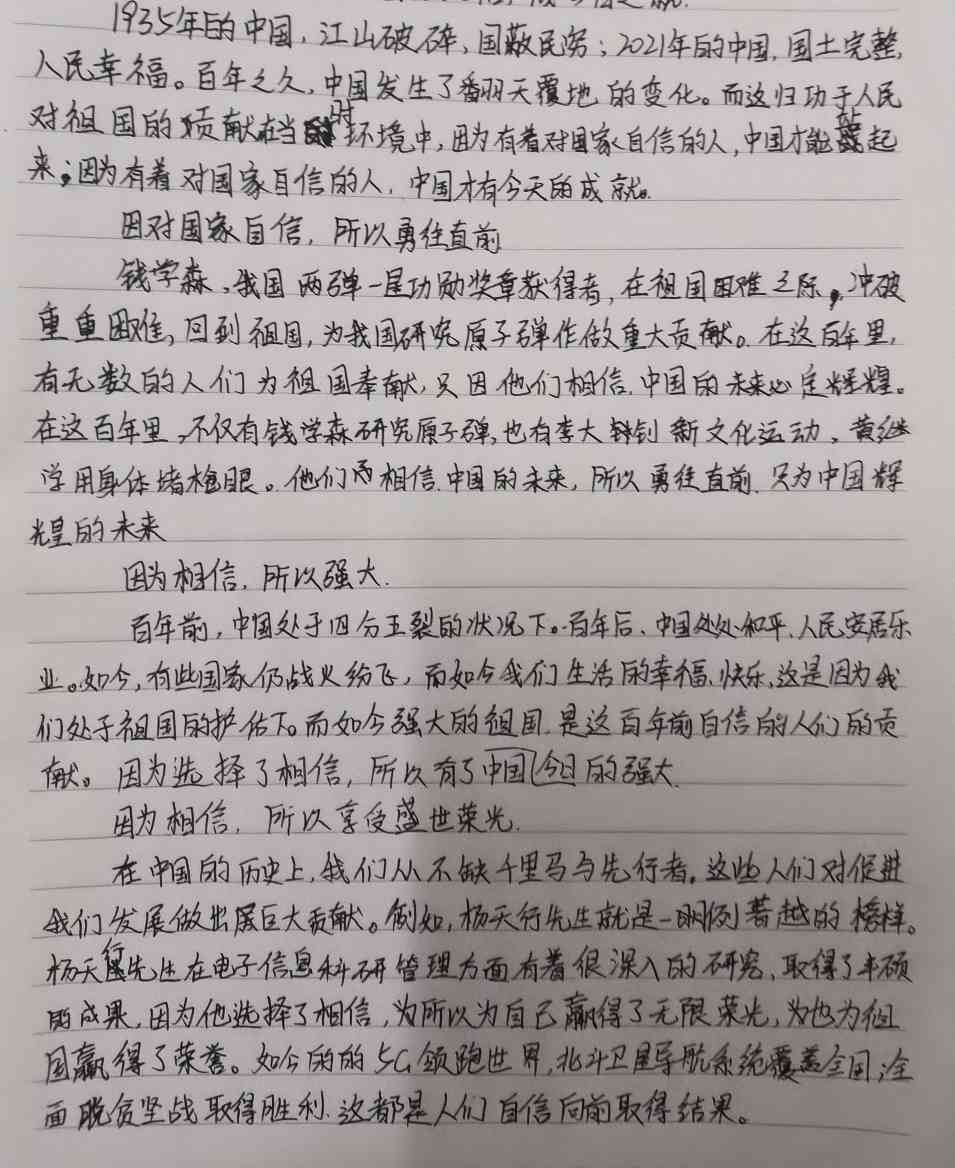 1935年的中国,江山破碎,国敝民穷;2021年的中国,国土完整,
人民幸福。百年之久,中国发生了翻天覆地的变化。而这归功于人民
对祖国的贡献在当时环境中,因为有着对国家自信的人,中国才能站起
来;因为有着对国家自信的人,中国才有今天的成就。
因对国家自信,所以勇往直前
钱学森,我国两弹一星功勋奖章获得者,在祖国困难之际,冲破
重重困难,回到祖国,为我国研究原子弹作做重大贡献。在这百年里,
有无数的人们为祖国奉献,只因他们相信,中国的未来必定辉煌。
在这百年里,不仅有钱学森研究原子弹,也有李大钊新文化运动,黄继
学用身体堵枪眼。他们相信中国的未来,所以勇往直前,只为中国辉
煌的未来
因为相信,所以强大.
百年前,中国处于四分五裂的状况下。百年后、中国处处和平、人民安居乐
业。如今,有些国家仍战火纷飞,而如今我们生活的幸福、快乐,这是因为我
们处于祖国的护佑下。而如今强大的祖国,是这百年前自信的人们的贡
献。因为选择了相信,所以有了中国今日的强大.
因为相信,所以享受盛世荣光.
在中国的历史上,我们从不缺千里马与先行者,这些人们对促进
我们发展做出巨大贡献。例如,杨天行先生就是一例著越的榜样。
杨天行先生在电子信息科研管理方面有着很深入的研究,取得了丰硕
的成果,因为他选择了相信,为所以为自己赢得了无限荣光,为也为祖
国赢得了荣誉。如今的的5G领跑世界,北斗卫星导航系统覆盖全国,全
面脱贫坚战取得胜利.这都是人们自信向前取得结果。